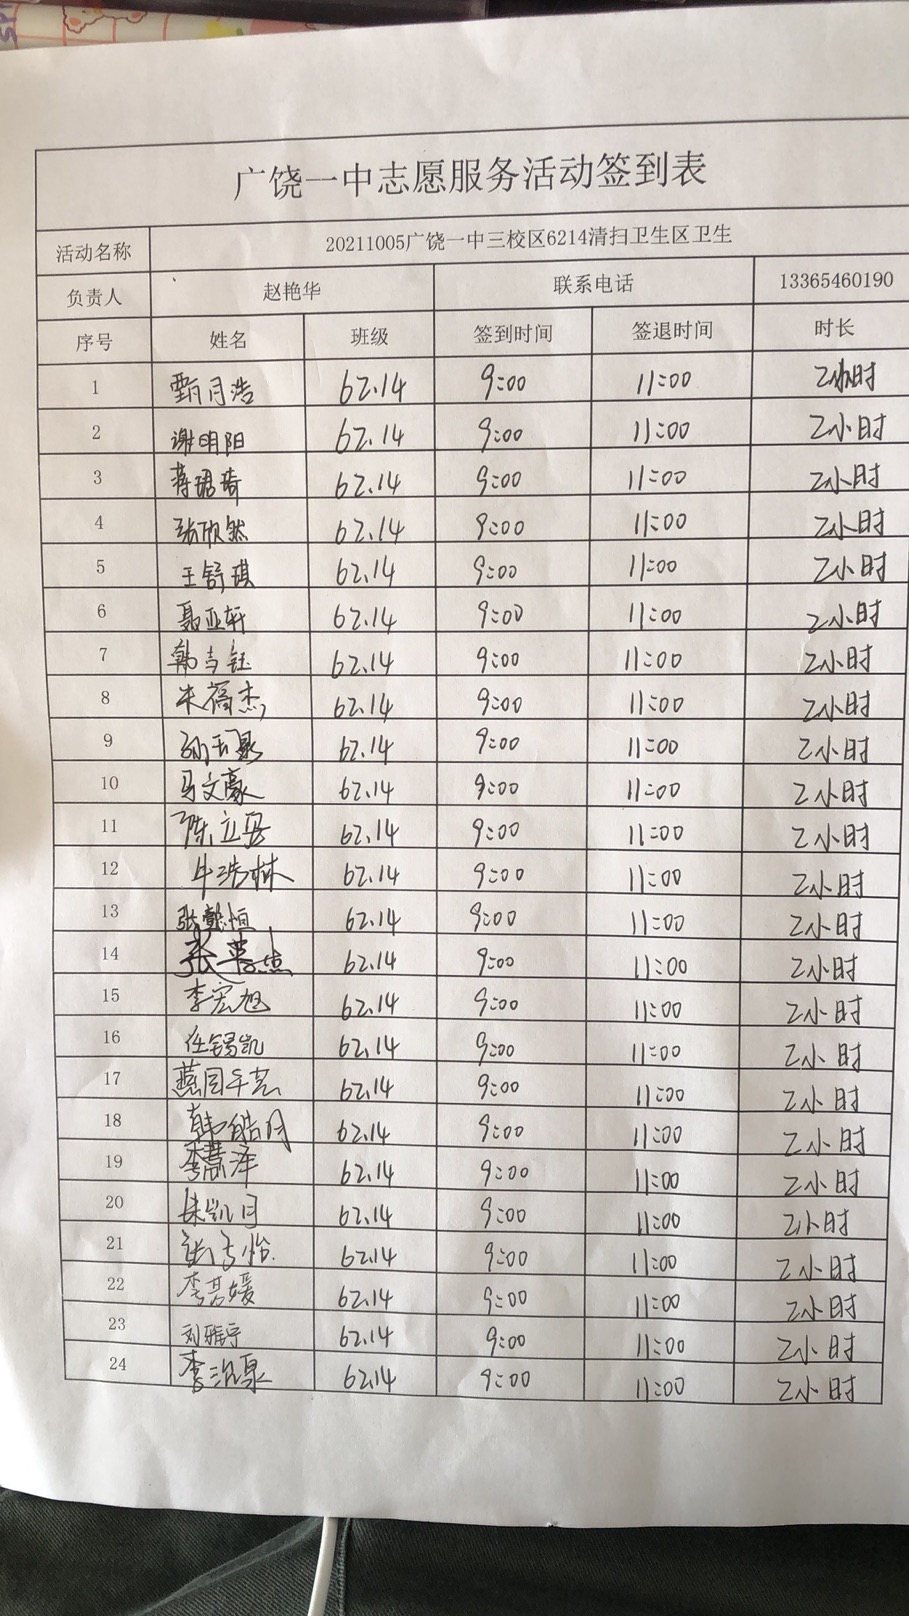 广饶一中志愿服务活动签到表
活动名称 20211005广饶一中三校区6214清扫卫生区卫生
负责人 赵艳华 联系电话 13365460190
序号 姓名 班级 签到时间 签退时间 时长
1 甄月浩 62.14 9:00 11:00 2小时
2 谢明阳 62.14 9:00 11:00 2小时
3 蒋珺琦 62.14 9:00 11:00 2小时
4 张欣然 62.14 9:00 11:00 2小时
5 王舒琪 62.14 9:00 11:00 2小时
6 聂亚轩 62.14 9:00 11:00 2小时
7 韩钰 62.14 9:00 11:00 2小时
8 朱福杰 62.14 9:00 11:00 2小时
9 孙玉 62.14 9:00 11:00 2小时
10 马文豪 62.14 9:00 11:00 2小时
11 陈立安 62.14 9:00 11:00 2小时
12 牛浩林 62.14 9:00 11:00 2小时
13 张懿恒 62.14 9:00 11:00 2小时
14 张 62.14 9:00 11:00 2小时
15 李宏旭 62.14 9:00 11:00 2小时
16 任锡凯 62.14 9:00 11:00 2小时
17 燕 62.14 9:00 11:00 2小时
18 韩皓月 62.14 9:00 11:00 2小时
19 李慧泽 62.14 9:00 11:00 2小时
20 朱凯月 62.14 9:00 11:00 2小时
21 怡 62.14 9:00 11:00 2小时
22 李媛 62.14 9:00 11:00 2小时
23 刘雅宁 62.14 9:00 11:00 2小时
24 李泉 62.14 9:00 11:00 2小时